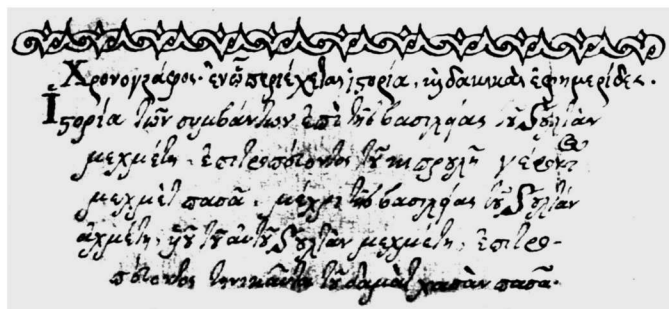 Χρονογράφος· ἐν ᾧ περιέχεται ἱστορία, κὴ δακικαὶ ἐφημερίδες.
Ἱστορία τῶν συμβάντων ἐπὶ τῆς βασιλείας τοῦ Σουλτὰν
μεχμέτη, ἐπιτροπεύοντος τοῦ κιπρουλῆ γέροντ
μεχμὲτ πασᾶ, μέχρι τῆς βασιλείας τοῦ Σουλτὰν
ἀχμέτη, ὑοῦ τοῦ αὐτοῦ Σουλτὰν μεχμέτη, ἐπιτρο-
πεύοντος τηνικαῦτα τοῦ δαμὰτ χασὰν πασᾶ.